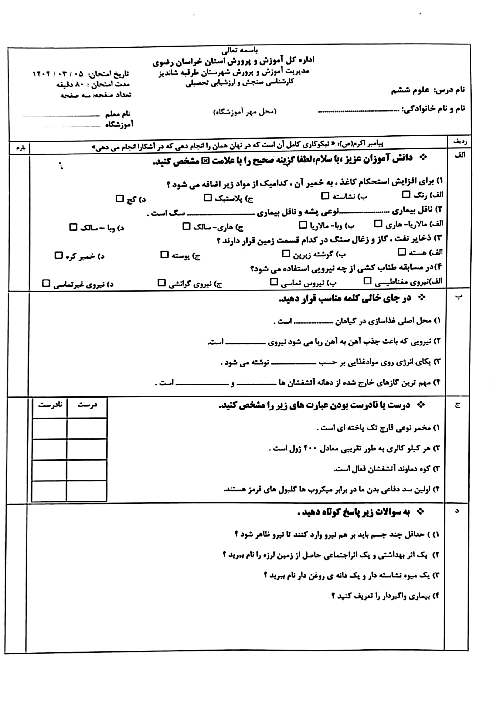 باسمه تعالی
اداره کل آموزش و پرورش استان خراسان رضوی
مدیریت آموزش و پرورش شهرستان طرقبه شاندیز
کارشناسی سنجش و ارزشیابی تحصیلی
(محل مهر آموزشگاه)
نام درس: علوم ششم
نام و نام خانوادگی:
تاریخ امتحان: ۰۵ / ۰۳ / ۱۴۰۲
مدت امتحان : ۸۰ دقیقه
تعداد صفحه: سه صفحه
نام معلم
آموزشگاه
ردیف
پیامبر اکرم(ص): « نیکوکاری کامل آن است که در نهان همان را انجام دهی که در آشکارا انجام می دهی»
بارم
الف
❖ دانش آموزان عزیز ،با سلام،لطفا گزینه صحیح را با علامت ☒ مشخص کنید.
۱) برای افزایش استحکام کاغذ ، به خمیر آن ، کدامیک از مواد زیر اضافه می شود ؟
الف) رنگ □ ب) نشاسته □ ج) پلاستیک □ د) گچ □
۲) ناقل بیماری ......................نوعی پشه و ناقل بیماری ...................... سگ است .
الف) مالاریا- هاری □ ب) وبا- مالاریا □ ج) هاری- سالک □ د) وبا – سالک □
۳) ذخایر نفت ، گاز و زغال سنگ در کدام قسمت زمین قرار دارند ؟
الف) هسته □ ب) گوشته زیرین □ ج) پوسته □ د) خمیر کره □
۴)در مسابقه طناب کشی از چه نیرویی استفاده می شود؟
الف)نیروی مغناطیسی □ ب) نیروس تماسی □ ج) نیروی گرانشی □ د) نیروی غیرتماسی □
ب
❖ در جای خالی کلمه مناسب قرار دهید.
۱) محل اصلی غذاسازی در گیاهان .............. است .
۲) نیرویی که باعث جذب آهن به آهن ربا می شود نیروی .............. است.
۳) یکای انرژی روی موادغذایی بر حسب .................. نوشته می شود .
۴) مهم ترین گازهای خارج شده از دهانه آتشفشان ها .............. و .................. است .
ج
❖ درست یا نادرست بودن عبارت های زیر را مشخص کنید.
درست
نادرست
۱) مخمر نوعی قارچ تک یاخته ای است .
۲) هر کیلو کالری به طور تقریبی معادل ۴۰۰ ژول است .
۳) کوه دماوند آتشفشان فعال است.
۴) اولین سد دفاعی بدن ما در برابر میکروب ها گلبول های قرمز هستند.
د
❖ به سوالات زیر پاسخ کوتاه دهید .
۱) ) حداقل چند جسم باید بر هم نیرو وارد کنند تا نیرو ظاهر شود ؟
۲) یک اثر بهداشتی و یک اثراجتماعی حاصل از زمین لرزه را نام ببرید ؟
۳) یک میوه نشاسته دار و یک دانه ی روغن دار نام ببرید ؟
۴) بیماری واگیردار را تعریف کنید ؟